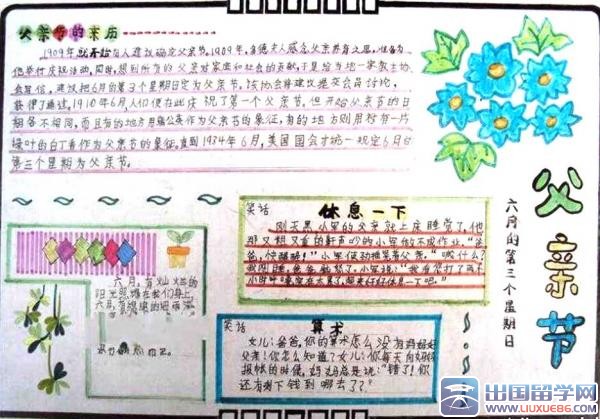 父亲节的来历
1909年就开始有人建议确定父亲节。1909年,多德夫人感念父亲养育之恩,准备为
他举行庆祝活动,同时,想到所有的父亲对家庭和社会的贡献,于是给当地一家教士协
会写信,建议把6月的第3个星期日定为父亲节,该协会将建议提交会员讨论,
获得了通过,1910年6月,人们便在此庆祝了第一个父亲节,但开始父亲节的日
期各不相同,而且有的地方用蒲公英作为父亲节的象征,有的地方则用衬有一片
绿叶的白丁香作为父亲节的象征。直到1934年6月,美国国会才统一规定6月日
第三个星期为父亲节。
父亲节
六月的第三个星期日
笑话
休息一下
刚天黑,小军的父亲就上床睡觉了,他
那又粗又重的鼾声吵的小军做不成作业,“爸
爸,快醒醒!”小军使劲推晃着父亲。“做什么?
笑话
算术
女儿:爸爸,你的算术怎么没有妈妈好
父亲:你怎么知道?女儿:你每天向妈妈
报帐的时候,妈妈总是说:“错了!你
还有剩下钱到哪去了?”
六月,有灿烂的
出国留学网
www.liuxue86.com